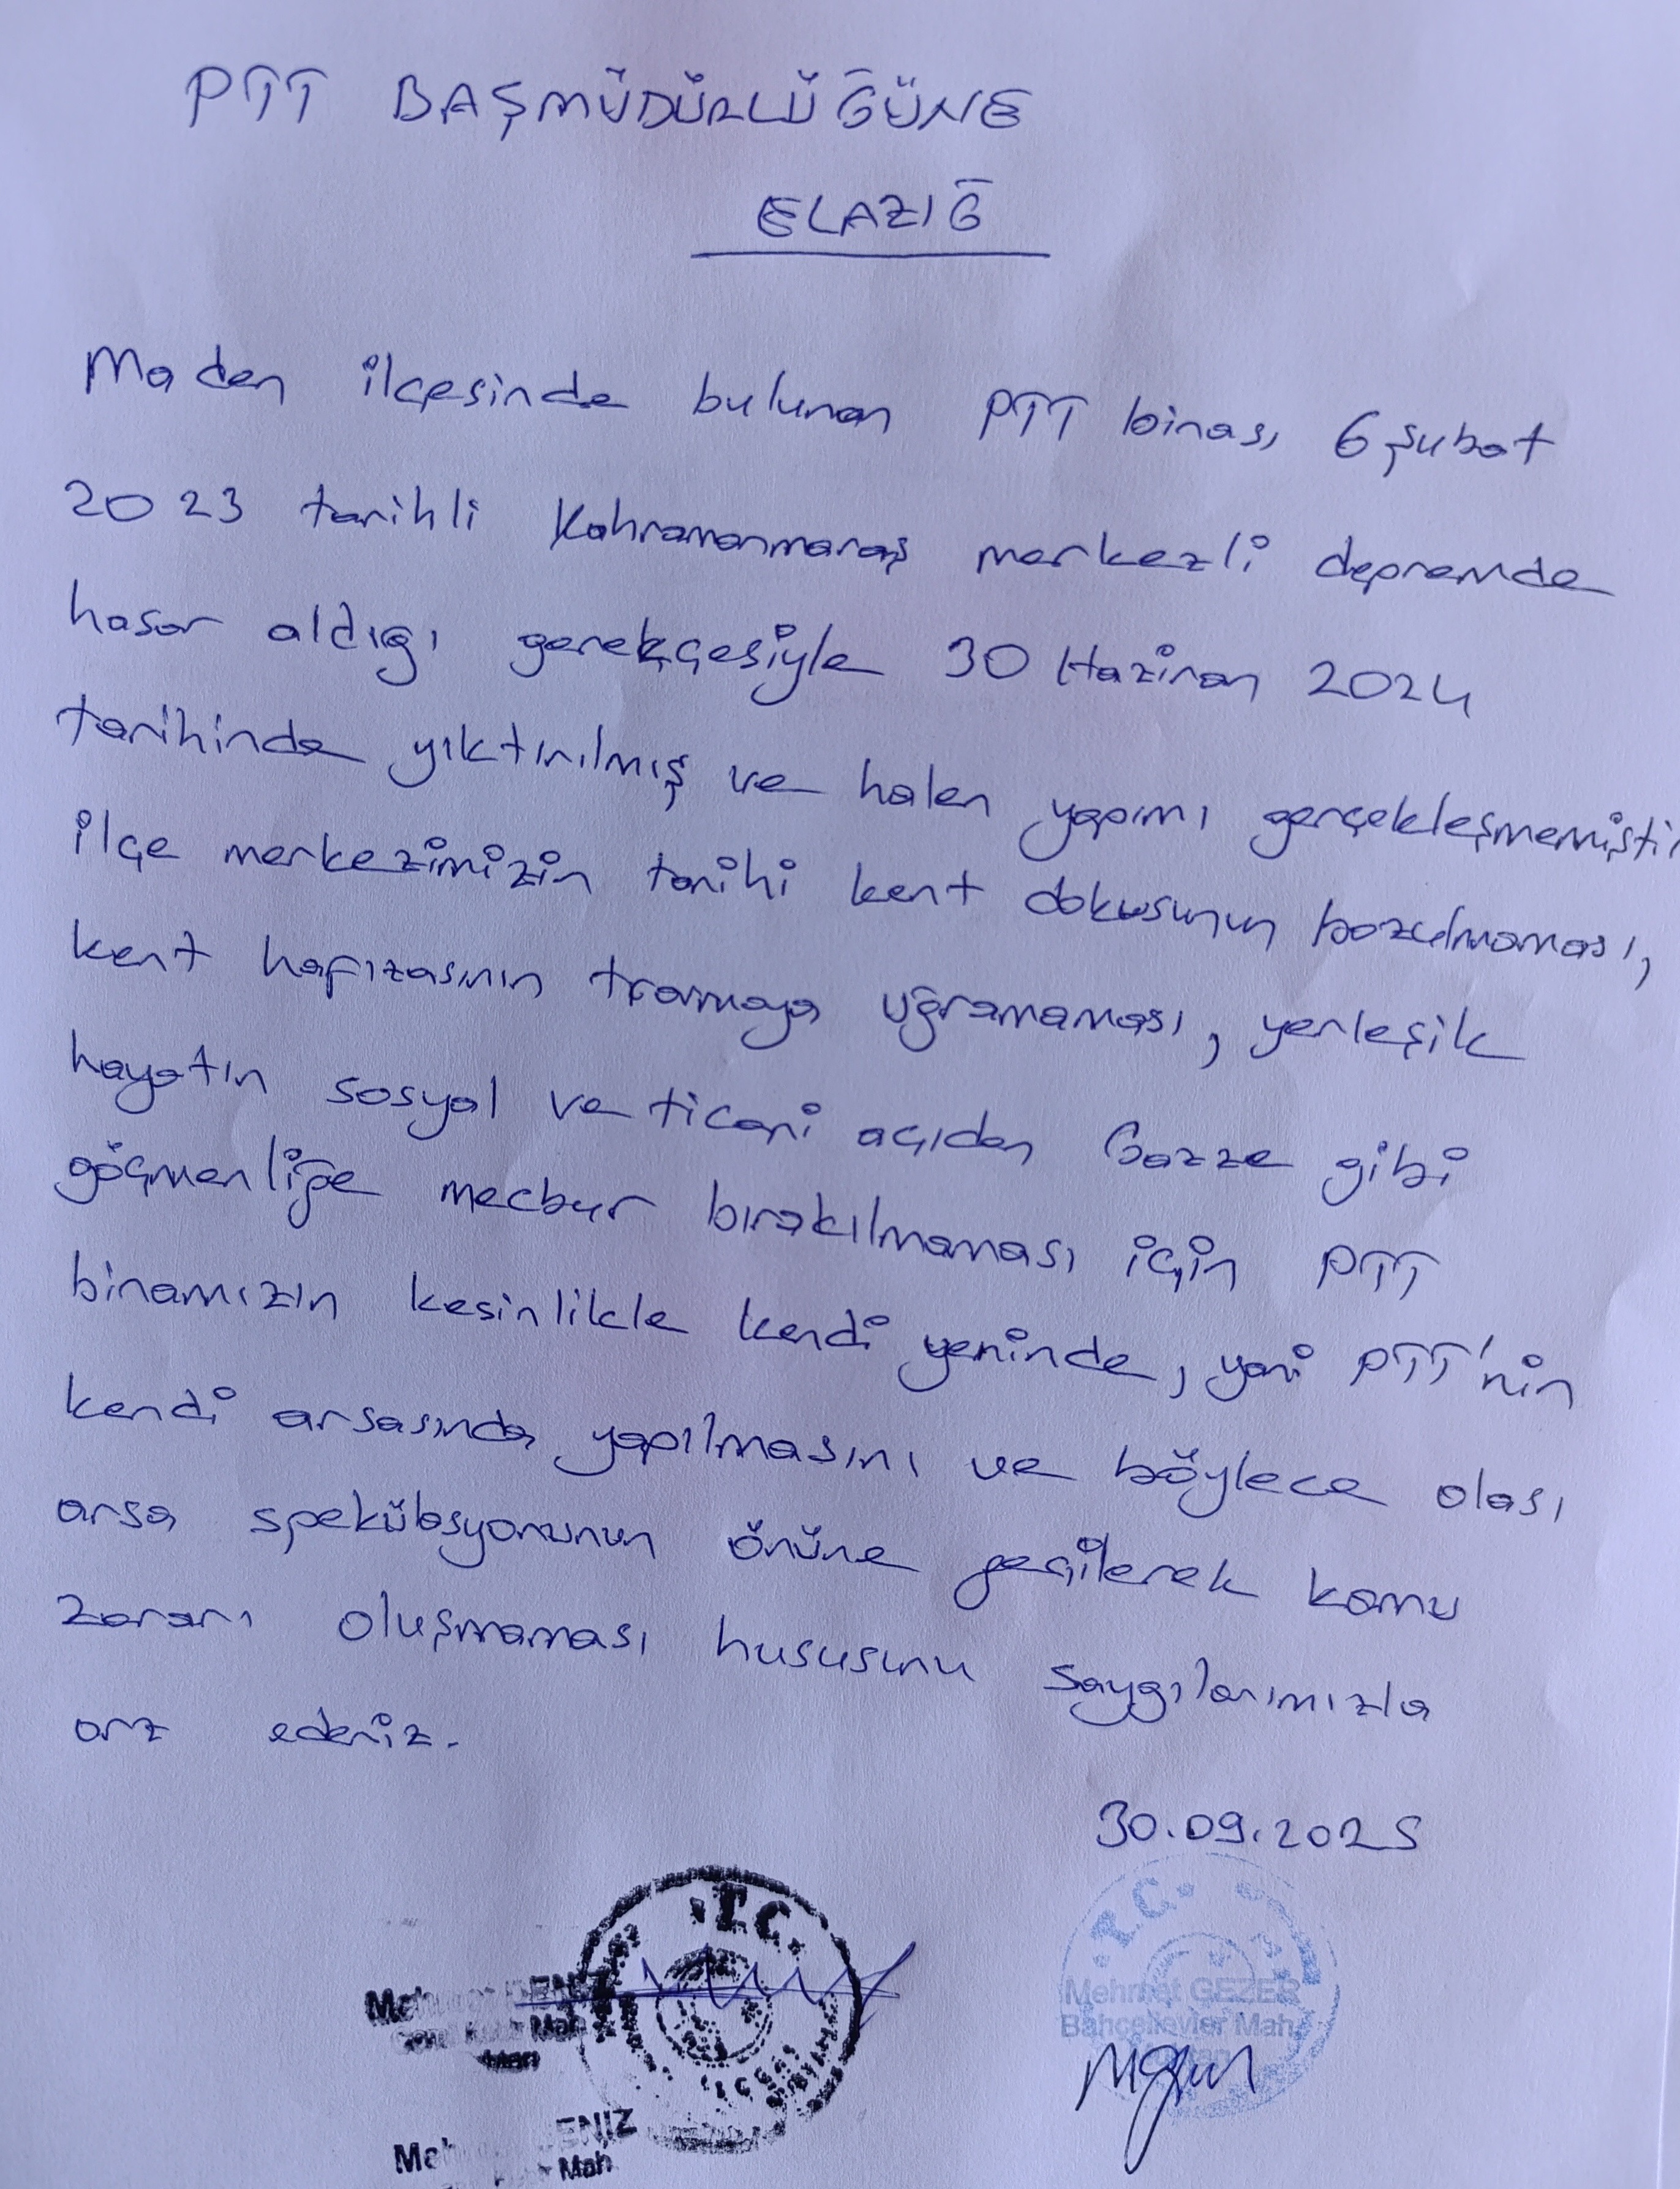 PTT BAŞMÜDÜRLÜĞÜNE
ELAZIĞ
Maden ilçesinde bulunan PTT binası 6 Şubat
2023 tarihli Kahramanmaraş merkezli depremde
hasar aldığı gerekçesiyle 30 Haziran 2024
tarihinde yıktırılmış ve halen yapımı gerçekleşmemişti
ilçe merkezimizin tarihi kent dokusunun bozulmaması,
kent hafızasının travmaya uğramaması, yerleşik
hayatın sosyal ve ticari açıdan Gazze gibi
göçmenliğe mecbur bırakılmaması için PTT
binamızın kesinlikle kendi yerinde, yani PTT'nin
kendi arsasında yapılmasını ve böylece olası
arsa spekülasyonunun önüne geçilerek kamu
zararı oluşmaması hususunu saygılarımızla
arz ederiz.
30.09.2025
T.C.
T.C.
DENİZ
Mah
Mehmet GEZER
Bahçelievler Mah.
ENİZ
Mah